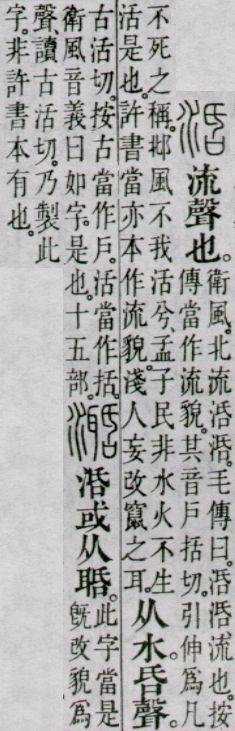 𣴠
流聲也。
衛風。北流𣴠𣴠。毛傳曰。𣴠𣴠流也。按
傳當作流貌。其音戶括切。引伸爲凡
不死之稱。邶風不我活兮、孟子民非水火不生
活是也。許書當亦本作流貌。淺人妄改竄之耳。
从水𠯑聲。
古活切。按古當作戶。活當作括。
衛風音義曰如字。是也。十五部。
𣴠或从聒。
此字當是
旣改貌爲
聲、讀古活切。乃製此
字。非許書本有也。